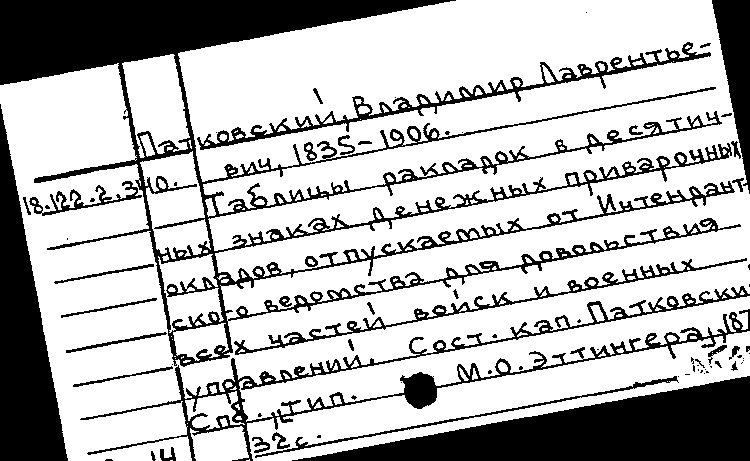 Патковский, Владимир Лаврентье-
вич, 1835-1906.
18.122.2.340.
Таблицы ракладок в десятич-
ных знаках денежных приварочных
окладов, отпускаемых от Интендант
ского ведомства для довольствия
всех частей войск и военных
управлений. Сост. кап. Патковски
Спб., тип. М.О. Эттингера, 187
14
32 с.